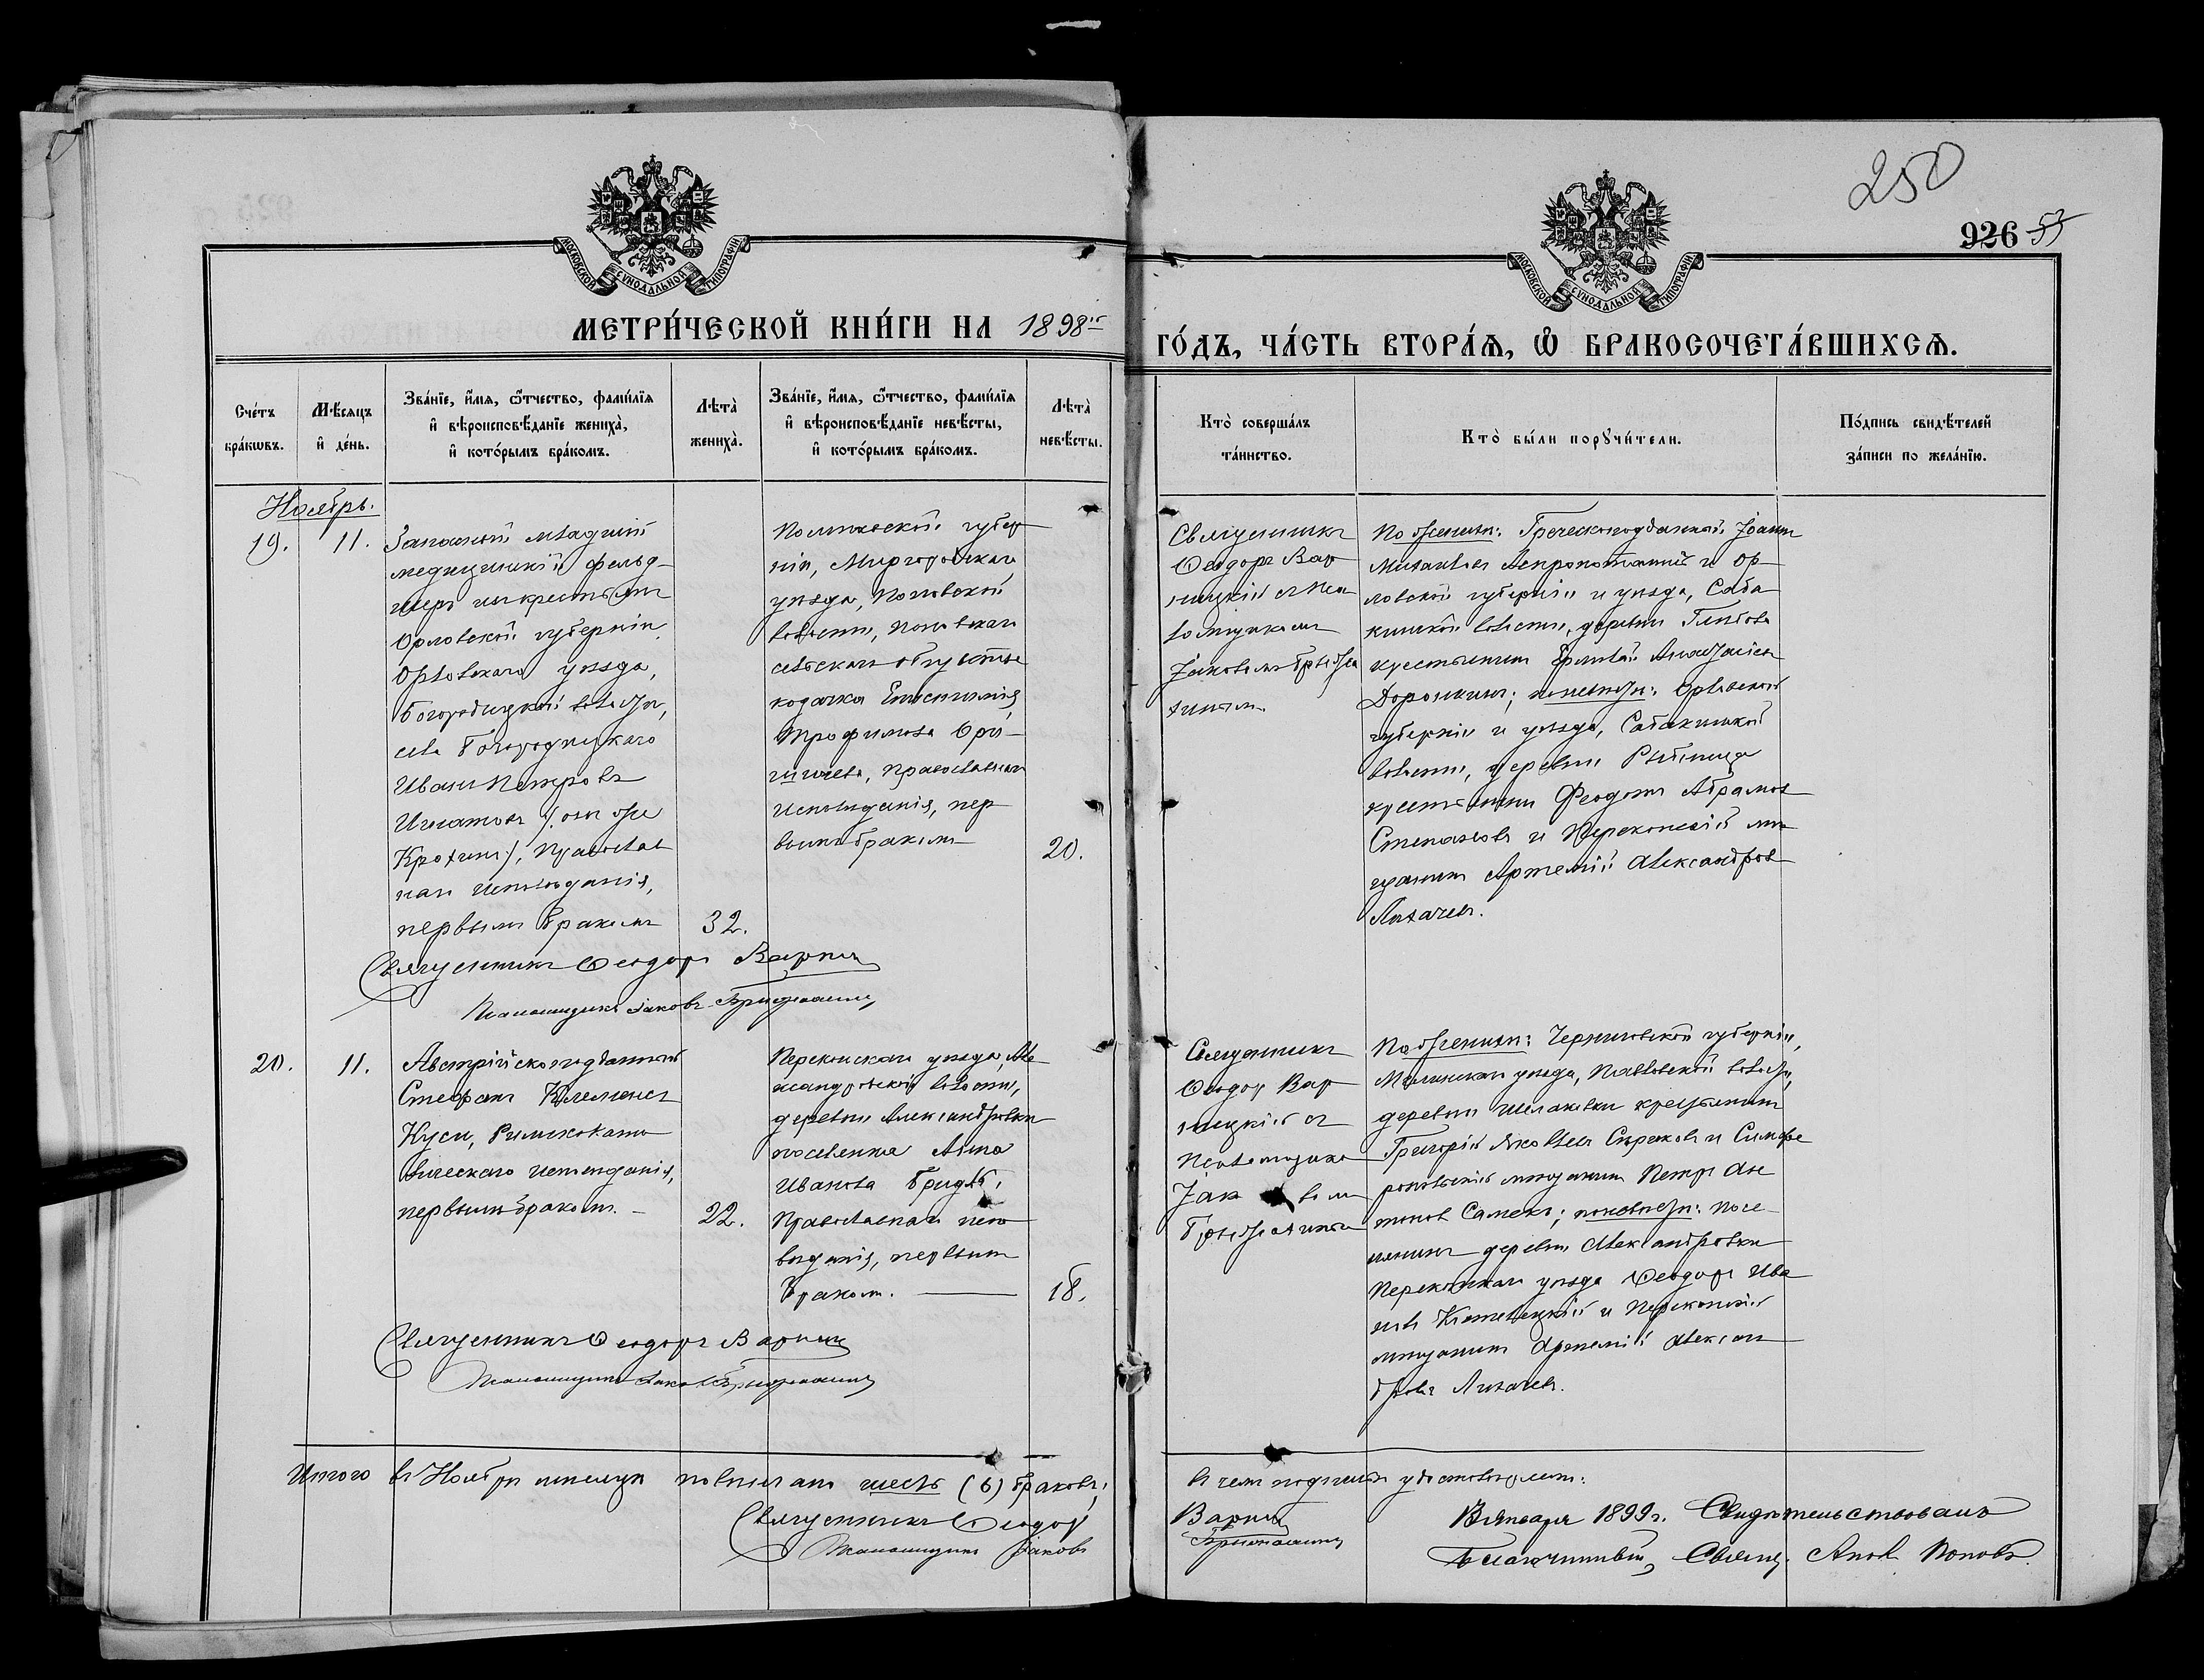 250
926 55
МОСКОВСКОЙ СѴНОДАЛЬНОЙ ТИПОГРАФІИ
МОСКОВСКОЙ СѴНОДАЛЬНОЙ ТИПОГРАФІИ
МЕТРИ́ЧЕСКОЙ КНИ́ГИ НА 1898й ГО́ДЪ, ЧА́СТЬ ВТОРА́Ѧ, Ѽ БРАКОСОЧЕТА́ВШИХСѦ.
Сче́тъ бра́кѡвъ.
Мѣ́сяцъ и҆ де́нь.
Зва́нїе, и҆́мѧ, ѻ҆́тчество, фами́лїѧ
и҆ вѣроисповѣ́данїе жениха̀,
и҆ кото́рымъ бра́комъ.
Лѣта̀ жениха̀.
Зва́нїе, и҆́мѧ, ѻ҆́тчество, фами́лїѧ
и҆ вѣроисповѣ́данїе невѣ́сты,
и҆ кото́рымъ бра́комъ.
Лѣта̀ невѣ́сты.
Кто̀ соверша́лъ
та́инство.
Кто̀ бы́ли порꙋчи́тели.
По́дпись свидѣ́телей
за́писи по жела́нїю.
Ноябрь.
19.
11.
Запасной младшій
медицинскій фельд-
шеръ изъ крестьянъ
Орловской губерніи,
Орловскаго уѣзда,
Богородицкой волости,
села Богородицкаго
Иванъ Петровъ
Игнатовъ /: онъ же
Крохинъ :/, Православ
наго исповѣданія,
первымъ бракомъ
32.
Полтавской губер
ніи, Миргородскаго
уѣзда, Поповской
волости, Поповскаго
сельскаго общества
козачка
Трофимова
Православнаго
исповѣданія, пер
вымъ бракомъ
20.
Священникъ
Ѳеодоръ Вар
ницкій съ Пса
ломщикомъ
Іаковомъ
По женихѣ: Греческоподданный Іоаннъ
Михаиловъ и Ор
ловской губерніи и уѣзда, Саба
кинской волости, деревни Глѣбова
крестьянинъ Ермолай Аѳанасіевъ
Дорошинъ; по невѣстѣ: Орловской
губерніи и уѣзда, Сабакинской
волости, деревни Рыбница
крестьянинъ Феодотъ Абрамовъ
Степановъ и Перекопскій мѣ
щанинъ Артемій Александровъ
Лихачевъ.
Священникъ Ѳеодоръ Варниц
Псаломщикъ Іаковъ
20.
11.
Австрійскоподданный
Стефанъ Клеменсъ
Куси, Римскокато
лическаго исповѣданія,
первымъ бракомъ. —
22.
Перекопскаго уѣзда, Але
ксандровской волости,
деревни Александровки
поселенка Анна
Иванова
Православнаго испо
вѣданія, первымъ
бракомъ. —
18.
Священникъ
Ѳеодоръ Вар
ницкій съ
Псаломщикомъ
Іаковомъ
По женихѣ: Черниговской губерніи,
Мглинскаго уѣзда, Павловской волости,
деревни крестьянинъ
Григорій Яковлевъ и Симфе
ропольскій мѣщанинъ Петръ Ан
тоновъ по невѣстѣ: посе
лянинъ деревни Александровки
Перекопскаго уѣзда Ѳеодоръ Ива
новъ и Перекопскій
мѣщанинъ Артемій Алексан
дровъ Лихачевъ.
Священникъ Ѳеодоръ Варниц
Псаломщикъ Іаковъ
Итого въ Ноябрѣ мѣсяцѣ повѣнчано шесть (6) браковъ; въ чемъ подписомъ удостовѣряемъ:
Священникъ Ѳеодоръ Варниц
Псаломщикъ Іаковъ
Января 1899 г. Свидѣтельствовалъ
Благочинный, Свящ. Попов.